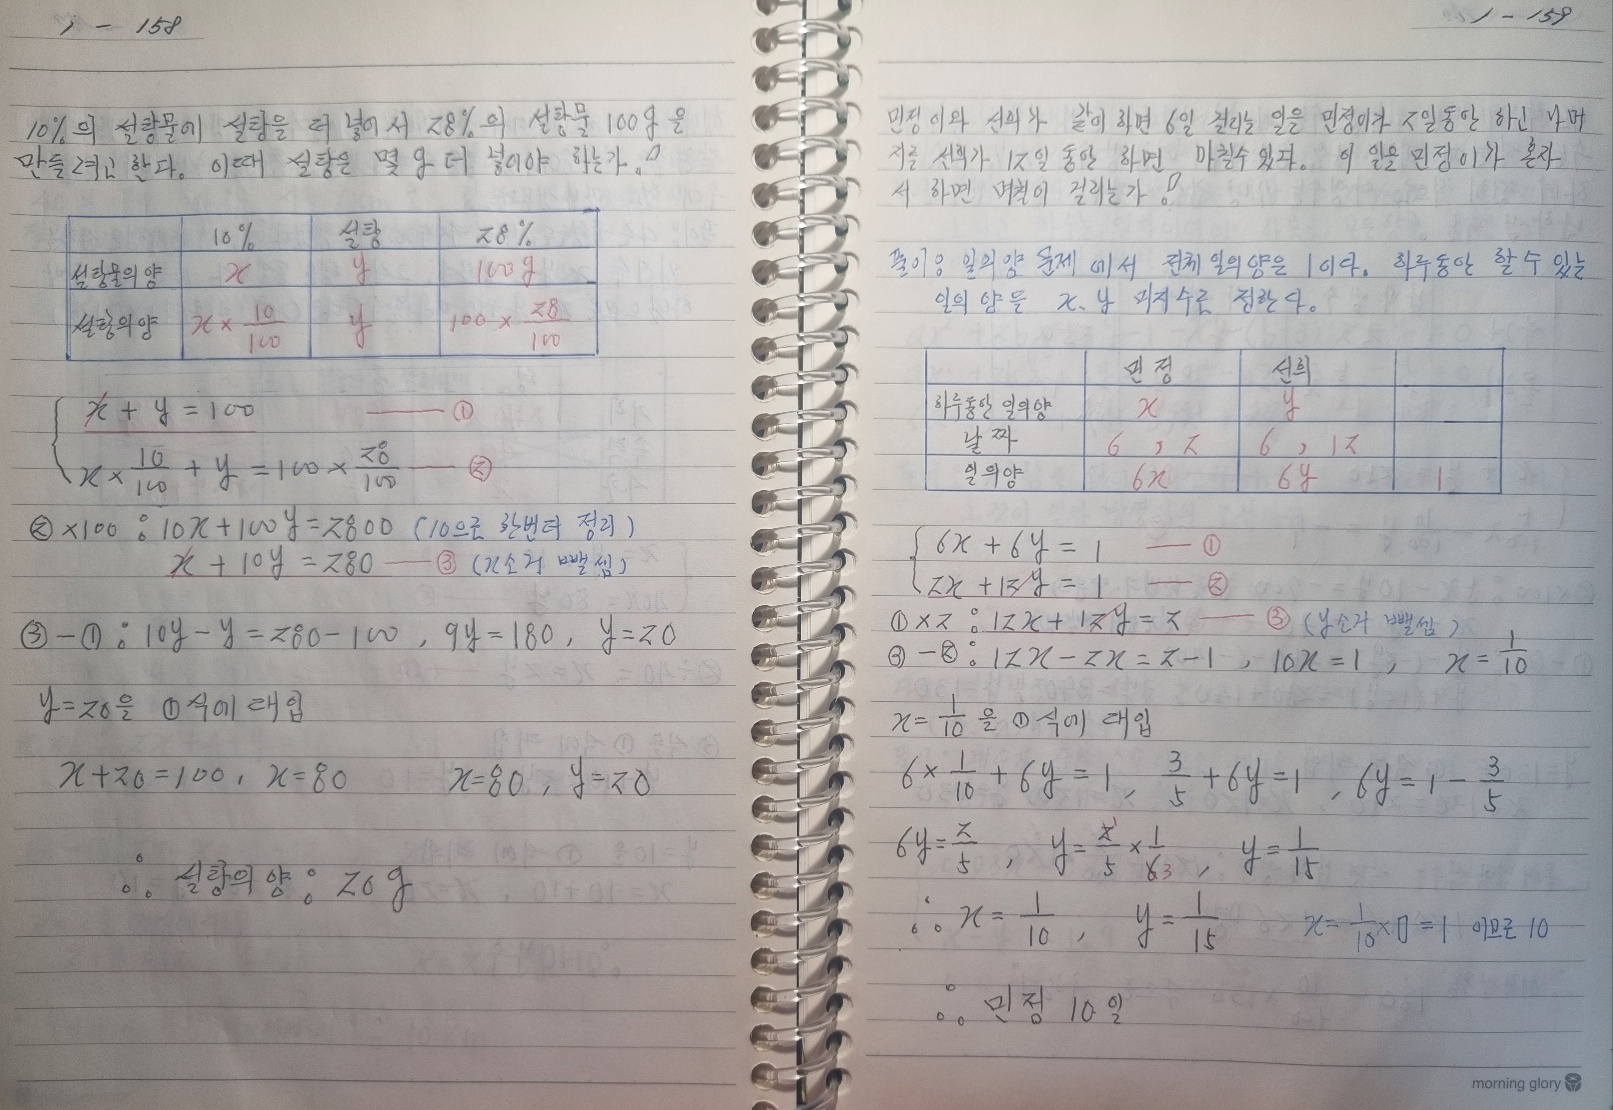 1 - 158
10%의 설탕물에 설탕을 더 넣어서 28%의 설탕물 100g을
만들려고 한다. 이때 설탕을 몇 g 더 넣어야 하는가?
10% 설탕 28%
설탕물의 양 x y 100g
설탕의 양 x × 10/100 y 100 × 28/100
x + y = 100 ― ①
x × 10/100 + y = 100 × 28/100 ― ②
② ×100 : 10x + 100y = 2800 (10으로 한번더 정리)
x + 10y = 280 ― ③ (x소거 뺄셈)
③ - ① : 10y - y = 280 - 100 , 9y = 180 , y = 20
y = 20을 ①식에 대입
x + 20 = 100 , x = 80 x = 80 , y = 20
∴ 설탕의 양 : 20g
1 - 159
민정이와 선희가 같이 하면 6일 걸리는 일을 민정이가 2일동안 하고 나머
지를 선희가 12일 동안 하면 마칠수 있다. 이 일을 민정이가 혼자
서 하면 며칠이 걸리는가?
풀이) 일의 양 문제 에서 전체 일의양은 1이다. 하루동안 할 수 있는
일의 양을 x, y 미지수로 정한다.
민정 선희
하루동안 일의양 x y
날짜 6 , 2 6 , 12
일의양 6x 6y 1
6x + 6y = 1 ― ①
2x + 12y = 1 ― ②
① ×2 : 12x + 12y = 2 ― ③ (y소거 뺄셈)
③ - ② : 12x - 2x = 2 - 1 , 10x = 1 , x = 1/10
x = 1/10 을 ①식에 대입
6 × 1/10 + 6y = 1 , 3/5 + 6y = 1 , 6y = 1 - 3/5
6y = 2/5 , y = 2/5 × 1/6 , y = 1/15
∴ x = 1/10 , y = 1/15 x = 1/10 × □ = 1 이므로 10
∴ 민정 10일
morning glory